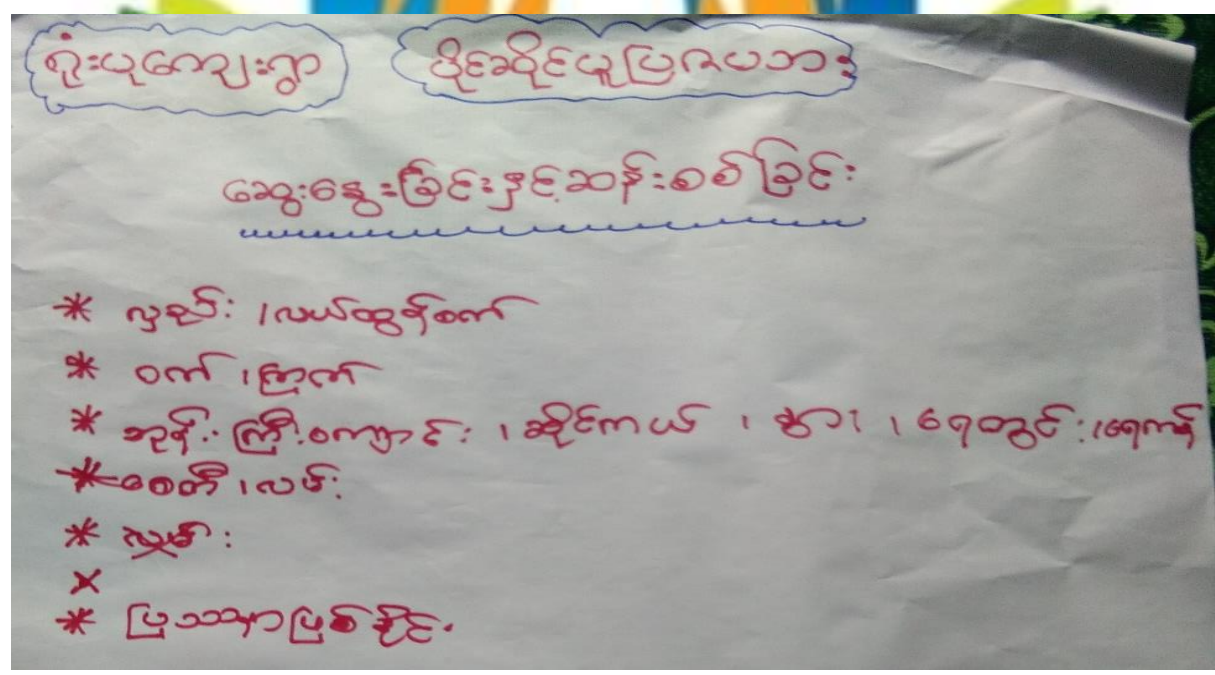 ရုံးပုကျေးရွာ ပိုင်ဆိုင်ယူပြဇပဘား
ဆွေးနွေးခြင်းနှင့်ဆန်းစစ်ခြင်း
* လှည်း ၊လယ်ထွန်စက်
* ဝက် ၊ကြက်
* ဘုန်းကြီးကျောင်း ၊ ဆိုင်ကယ် ၊ နွား ၊ ရေတွင်း ၊ရေကန်
* စေတီ ၊လမ်း
*
×
* ပြဿနာဖြစ်နိုင်